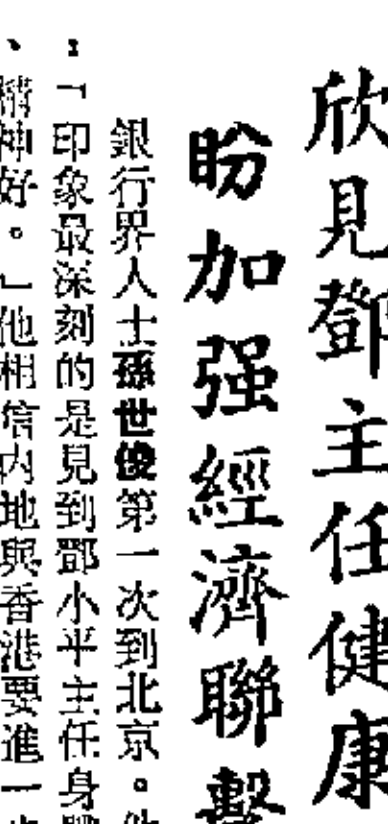 欣見鄧主任健康
盼加强經濟聯繫
銀行界人士孫世俊第一次到北京。他
：「印象最深刻的是見到鄧小平主任身體
、精神好。」他相信内地與香港要進一步